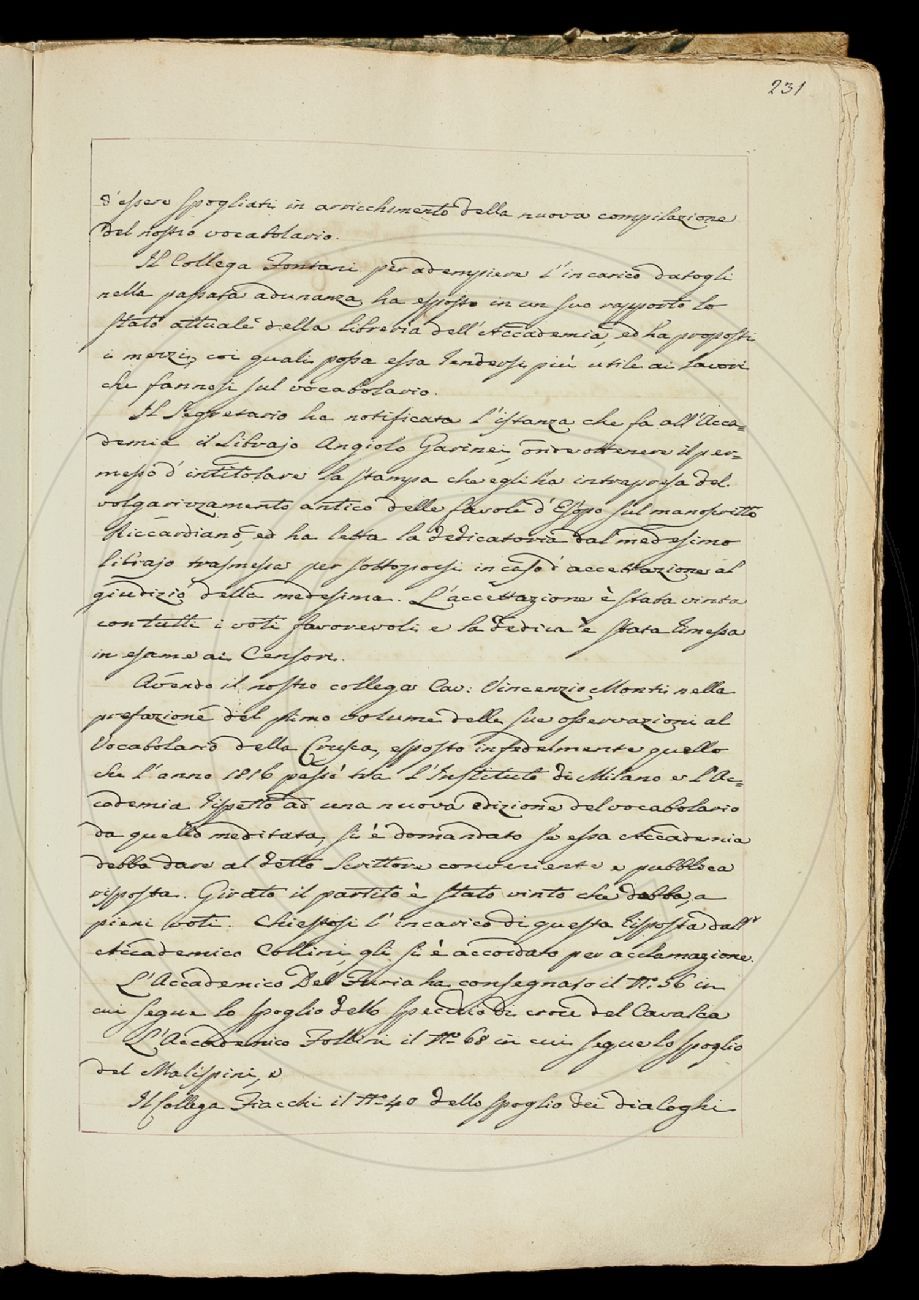 231
d'essere spogliati in arricchimento della nuova compilazione
del nostro vocabolario.
Il Collega Fontani per adempiere l'incarico datogli
nella passata adunanza ha esposto in un suo rapporto lo
stato attuale della libreria dell'Accademia, ed ha proposti
i mezzi, coi quali possa essa rendersi più utile ai lavori
che fannosi sul vocabolario.
Il Segretario ha notificata l'istanza che fa all'Acca=
demia il Librajo Angiolo Garinei, onde ottenere il per=
messo d'intitolare la stampa che egli ha intrapresa del
volgarizzamento antico delle favole d'Esopo sul manoscritto
Riccardiano, ed ha letta la dedicatoria dal medesimo
librajo trasmessa per sottoporsi in caso d'accettazione al
giudizio della medesima. L'accettazione è stata vinta
con tutti i voti favorevoli e la dedica è stata rimessa
in esame ai Censori.
Avendo il nostro collega Cav: Vincenzio Monti nella
prefazione del primo volume delle sue osservazioni al
Vocabolario della Crusca, esposto infedelmente quello
che l'anno 1816 passò tra l'Instituto di Milano e l'Ac=
cademia rispetto ad una nuova edizione del vocabolario
da quello meditata, si è domandato se essa Accademia
debba dare al detto Scrittore conveniente e pubblica
risposta. Girato il partito è stato vinto che debba, a
pieni voti. Chiestosi l'incarico di questa risposta dall'
Accademico Collini, gli si è accordato per acclamazione.
L'Accademico Del Furia ha consegnato il N.º 56 in
cui segue lo spoglio dello specchio di croce del Cavalca
L'Accademico Follini il N.º 68 in cui segue lo spoglio
del Malispini, e
Il Collega Fiacchi il N.º 40 dello spoglio dei dialoghi